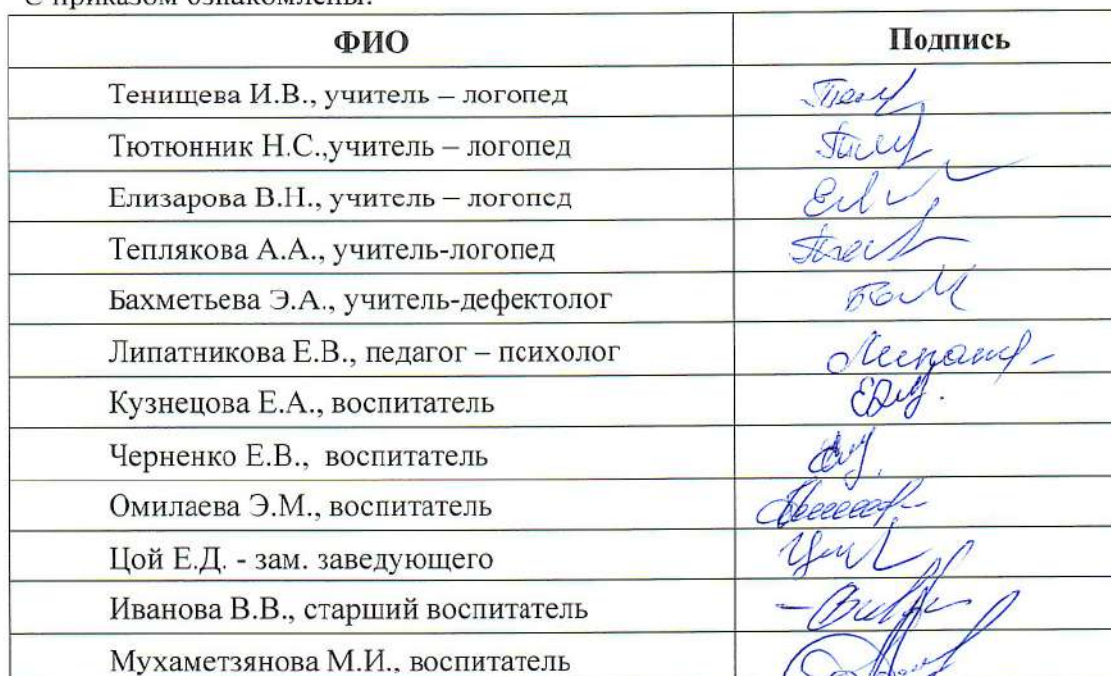 С приказом ознакомлены:
ФИО Подпись
Тенищева И.В., учитель – логопед
Тютюнник Н.С.,учитель – логопед
Елизарова В.Н., учитель – логопед
Теплякова А.А., учитель-логопед
Бахметьева Э.А., учитель-дефектолог
Липатникова Е.В., педагог – психолог
Кузнецова Е.А., воспитатель
Черненко Е.В., воспитатель
Омилаева Э.М., воспитатель
Цой Е.Д. - зам. заведующего
Иванова В.В., старший воспитатель
Мухаметзянова М.И., воспитатель